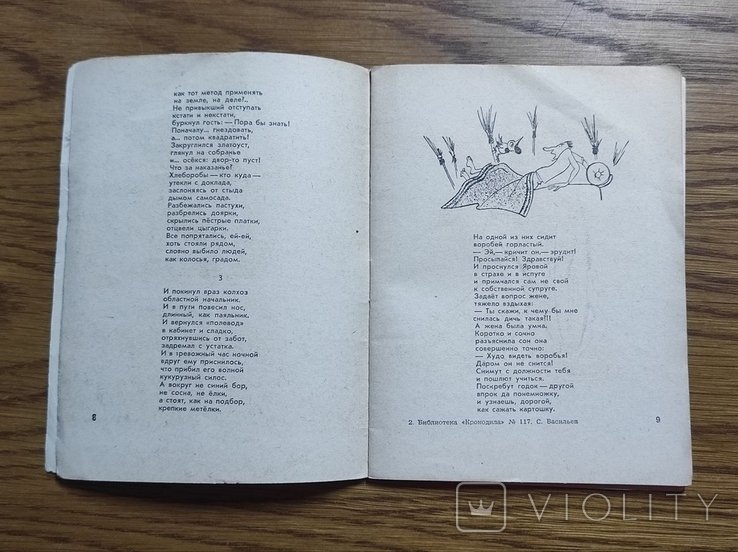 как тот метод применять
на земле, на деле?..
Не привыкший отступать
кстати и некстати,
буркнул гость: — Пора бы знать!
Поначалу... гнездовать,
а... потом квадратить!
Закруглился златоуст,
глянул на собранье
и... осёкся: двор-то пуст!
Что за наказанье?
Хлеборобы — кто куда —
утекли с доклада,
заслоняясь от стыда
дымом самосада.
Разбежались пастухи,
разбрелись доярки,
скрылись пёстрые платки,
отцвели цыгарки.
Все попрятались, ей-ей,
хоть стояли рядом,
словно выбило людей,
как колосья, градом.
3
И покинул враз колхоз
областной начальник.
И в пути повесил нос,
длинный, как паяльник.
И вернулся «полевод»
в кабинет и сладко,
отряхнувшись от забот,
задремал с устатка.
И в тревожный час ночной
вдруг ему приснилось,
что прибил его волной
кукурузный силос.
А вокруг не синий бор,
не сосна, не ёлки,
а стоят, как на подбор,
крепкие метёлки.
8
На одной из них сидит
воробей горластый.
— Эй,— кричит он,— эрудит!
Просыпайся! Здравствуй!
И проснулся Яровой
в страхе и в испуге
и примчался сам не свой
к собственной супруге.
Задаёт вопрос жене,
тяжело вздыхая:
— Ты скажи, к чему бы мне
снилась дичь такая!!!
А жена была умна.
Коротко и сочно
разъяснила сон она
совершенно точно:
— Худо видеть воробья!
Даром он не снится!
Снимут с должности тебя
и пошлют учиться.
Поскребут годок — другой
впрок да понемножку,
и узнаешь, дорогой,
как сажать картошку.
2. Библиотека «Крокодила» № 117. С. Васильев
9
VIOLITY